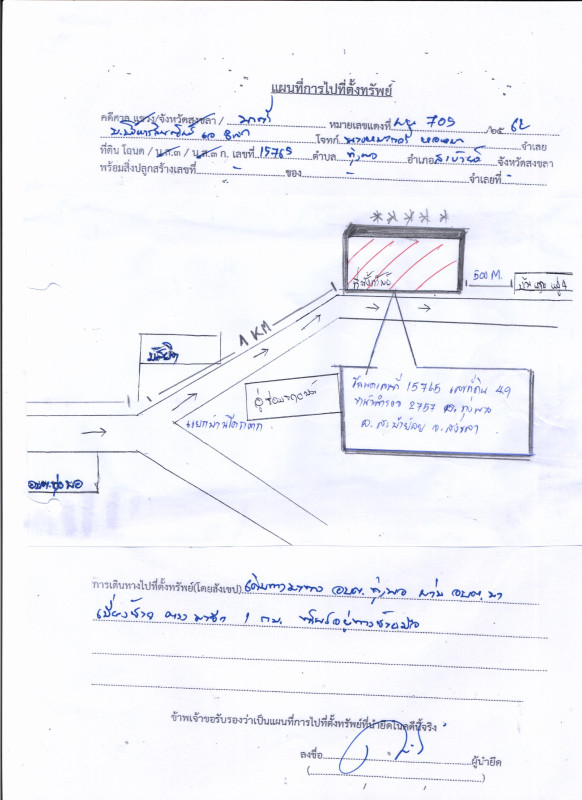 แผนที่การไปที่ตั้งทรัพย์
คดีศาล แขวง/จังหวัดสงขลา / นาทวี หมายเลขแดงที่ ผบ 709 /๒๕ 62
โจทก์ จำเลย
ที่ดิน โฉนด / น.ส.๓ / น.ส.๓ ก. เลขที่ 15765 ตำบล ทุ่งพอ อำเภอ สะบ้าย้อย จังหวัดสงขลา
พร้อมสิ่งปลูกสร้างเลขที่ - ของ - จำเลยที่ -
ที่ตั้งทรัพย์
500 M.
1 KM
มัสยิด
โฉนดเลขที่ 15765 เลขที่ดิน 49
หน้าสำรวจ 2757 ต. ทุ่งพอ
อ. สะบ้าย้อย จ. สงขลา
อบต. ทุ่งพอ
การเดินทางไปที่ตั้งทรัพย์(โดยสังเขป) เดินทางมาทาง อบต. ทุ่งพอ ผ่าน อบต. มา
เบี่ยงซ้าย ตรงมาอีก 1 กม. ทรัพย์อยู่ทางซ้ายมือ
ข้าพเจ้าขอรับรองว่าเป็นแผนที่การไปที่ตั้งทรัพย์ที่นำยึดในคดีนี้จริง
ลงชื่อ ผู้นำยึด
( )